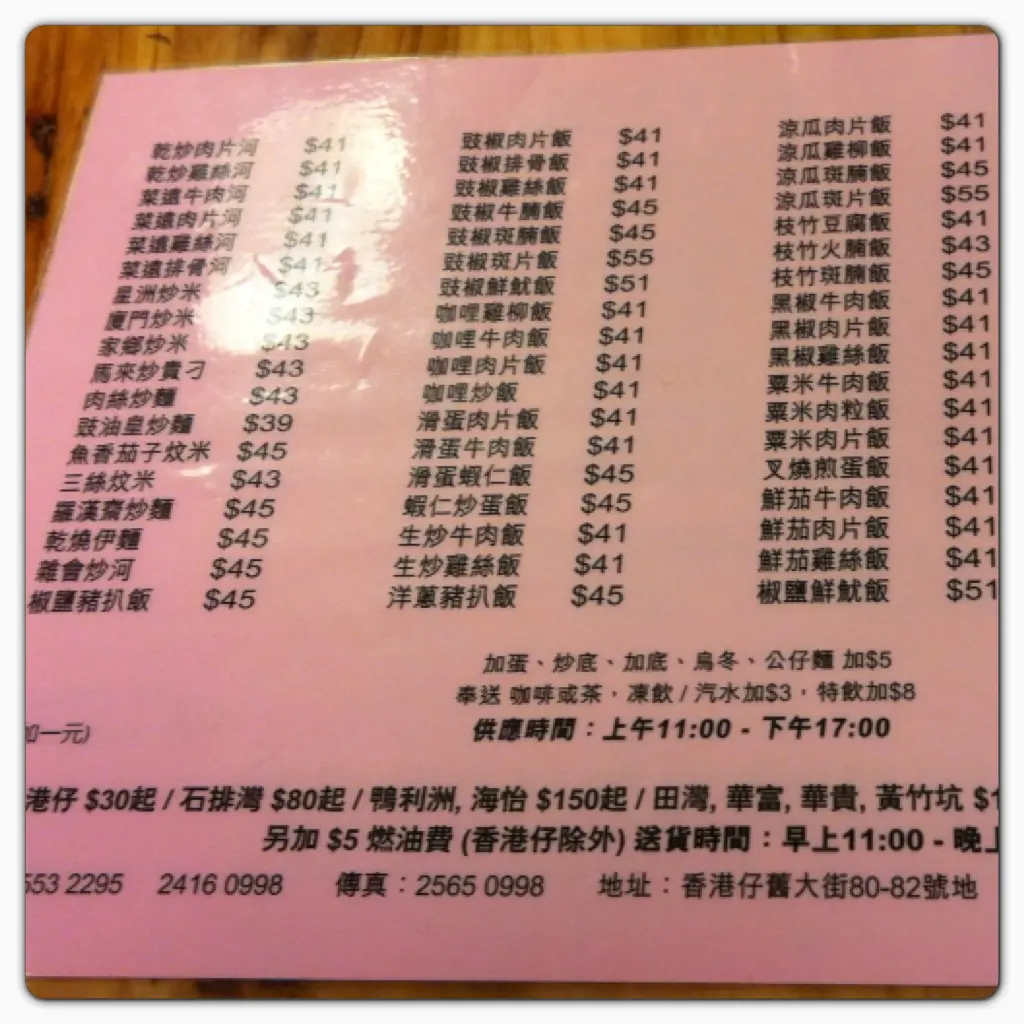 乾炒肉片河 $41
乾炒雞絲河 $41
菜遠牛肉河 $41
菜遠肉片河 $41
菜遠雞絲河 $41
菜遠排骨河 $41
星洲炒米 $43
廈門炒米 $43
家鄉炒米 $43
馬來炒貴刁 $43
肉絲炒麵 $43
豉油皇炒麵 $39
魚香茄子炆米 $45
三絲炆米 $43
羅漢齋炒麵 $45
乾燒伊麵 $45
雜會炒河 $45
椒鹽豬扒飯 $45
豉椒肉片飯 $41
豉椒排骨飯 $41
豉椒雞絲飯 $41
豉椒牛腩飯 $45
豉椒斑腩飯 $45
豉椒斑片飯 $55
豉椒鮮魷飯 $51
咖哩雞柳飯 $41
咖哩牛肉飯 $41
咖哩肉片飯 $41
咖哩炒飯 $41
滑蛋肉片飯 $41
滑蛋牛肉飯 $41
滑蛋蝦仁飯 $45
蝦仁炒蛋飯 $45
生炒牛肉飯 $41
生炒雞絲飯 $41
洋蔥豬扒飯 $45
涼瓜肉片飯 $41
涼瓜雞柳飯 $41
涼瓜斑腩飯 $45
涼瓜斑片飯 $55
枝竹豆腐飯 $41
枝竹火腩飯 $43
枝竹斑腩飯 $45
黑椒牛肉飯 $41
黑椒肉片飯 $41
黑椒雞絲飯 $41
粟米牛肉飯 $41
粟米肉粒飯 $41
粟米肉片飯 $41
叉燒煎蛋飯 $41
鮮茄牛肉飯 $41
鮮茄肉片飯 $41
鮮茄雞絲飯 $41
椒鹽鮮魷飯 $51
加蛋、炒底、加底、烏冬、公仔麵 加$5
奉送 咖啡或茶，凍飲 / 汽水加$3，特飲加$8
供應時間：上午11:00 - 下午17:00
加一元)
港仔 $30起 / 石排灣 $80起 / 鴨利洲, 海怡 $150起 / 田灣, 華富, 華貴, 黃竹坑 $1
另加 $5 燃油費 (香港仔除外) 送貨時間：早上11:00 - 晚上
553 2295 2416 0998 傳真：2565 0998 地址：香港仔舊大街80-82號地